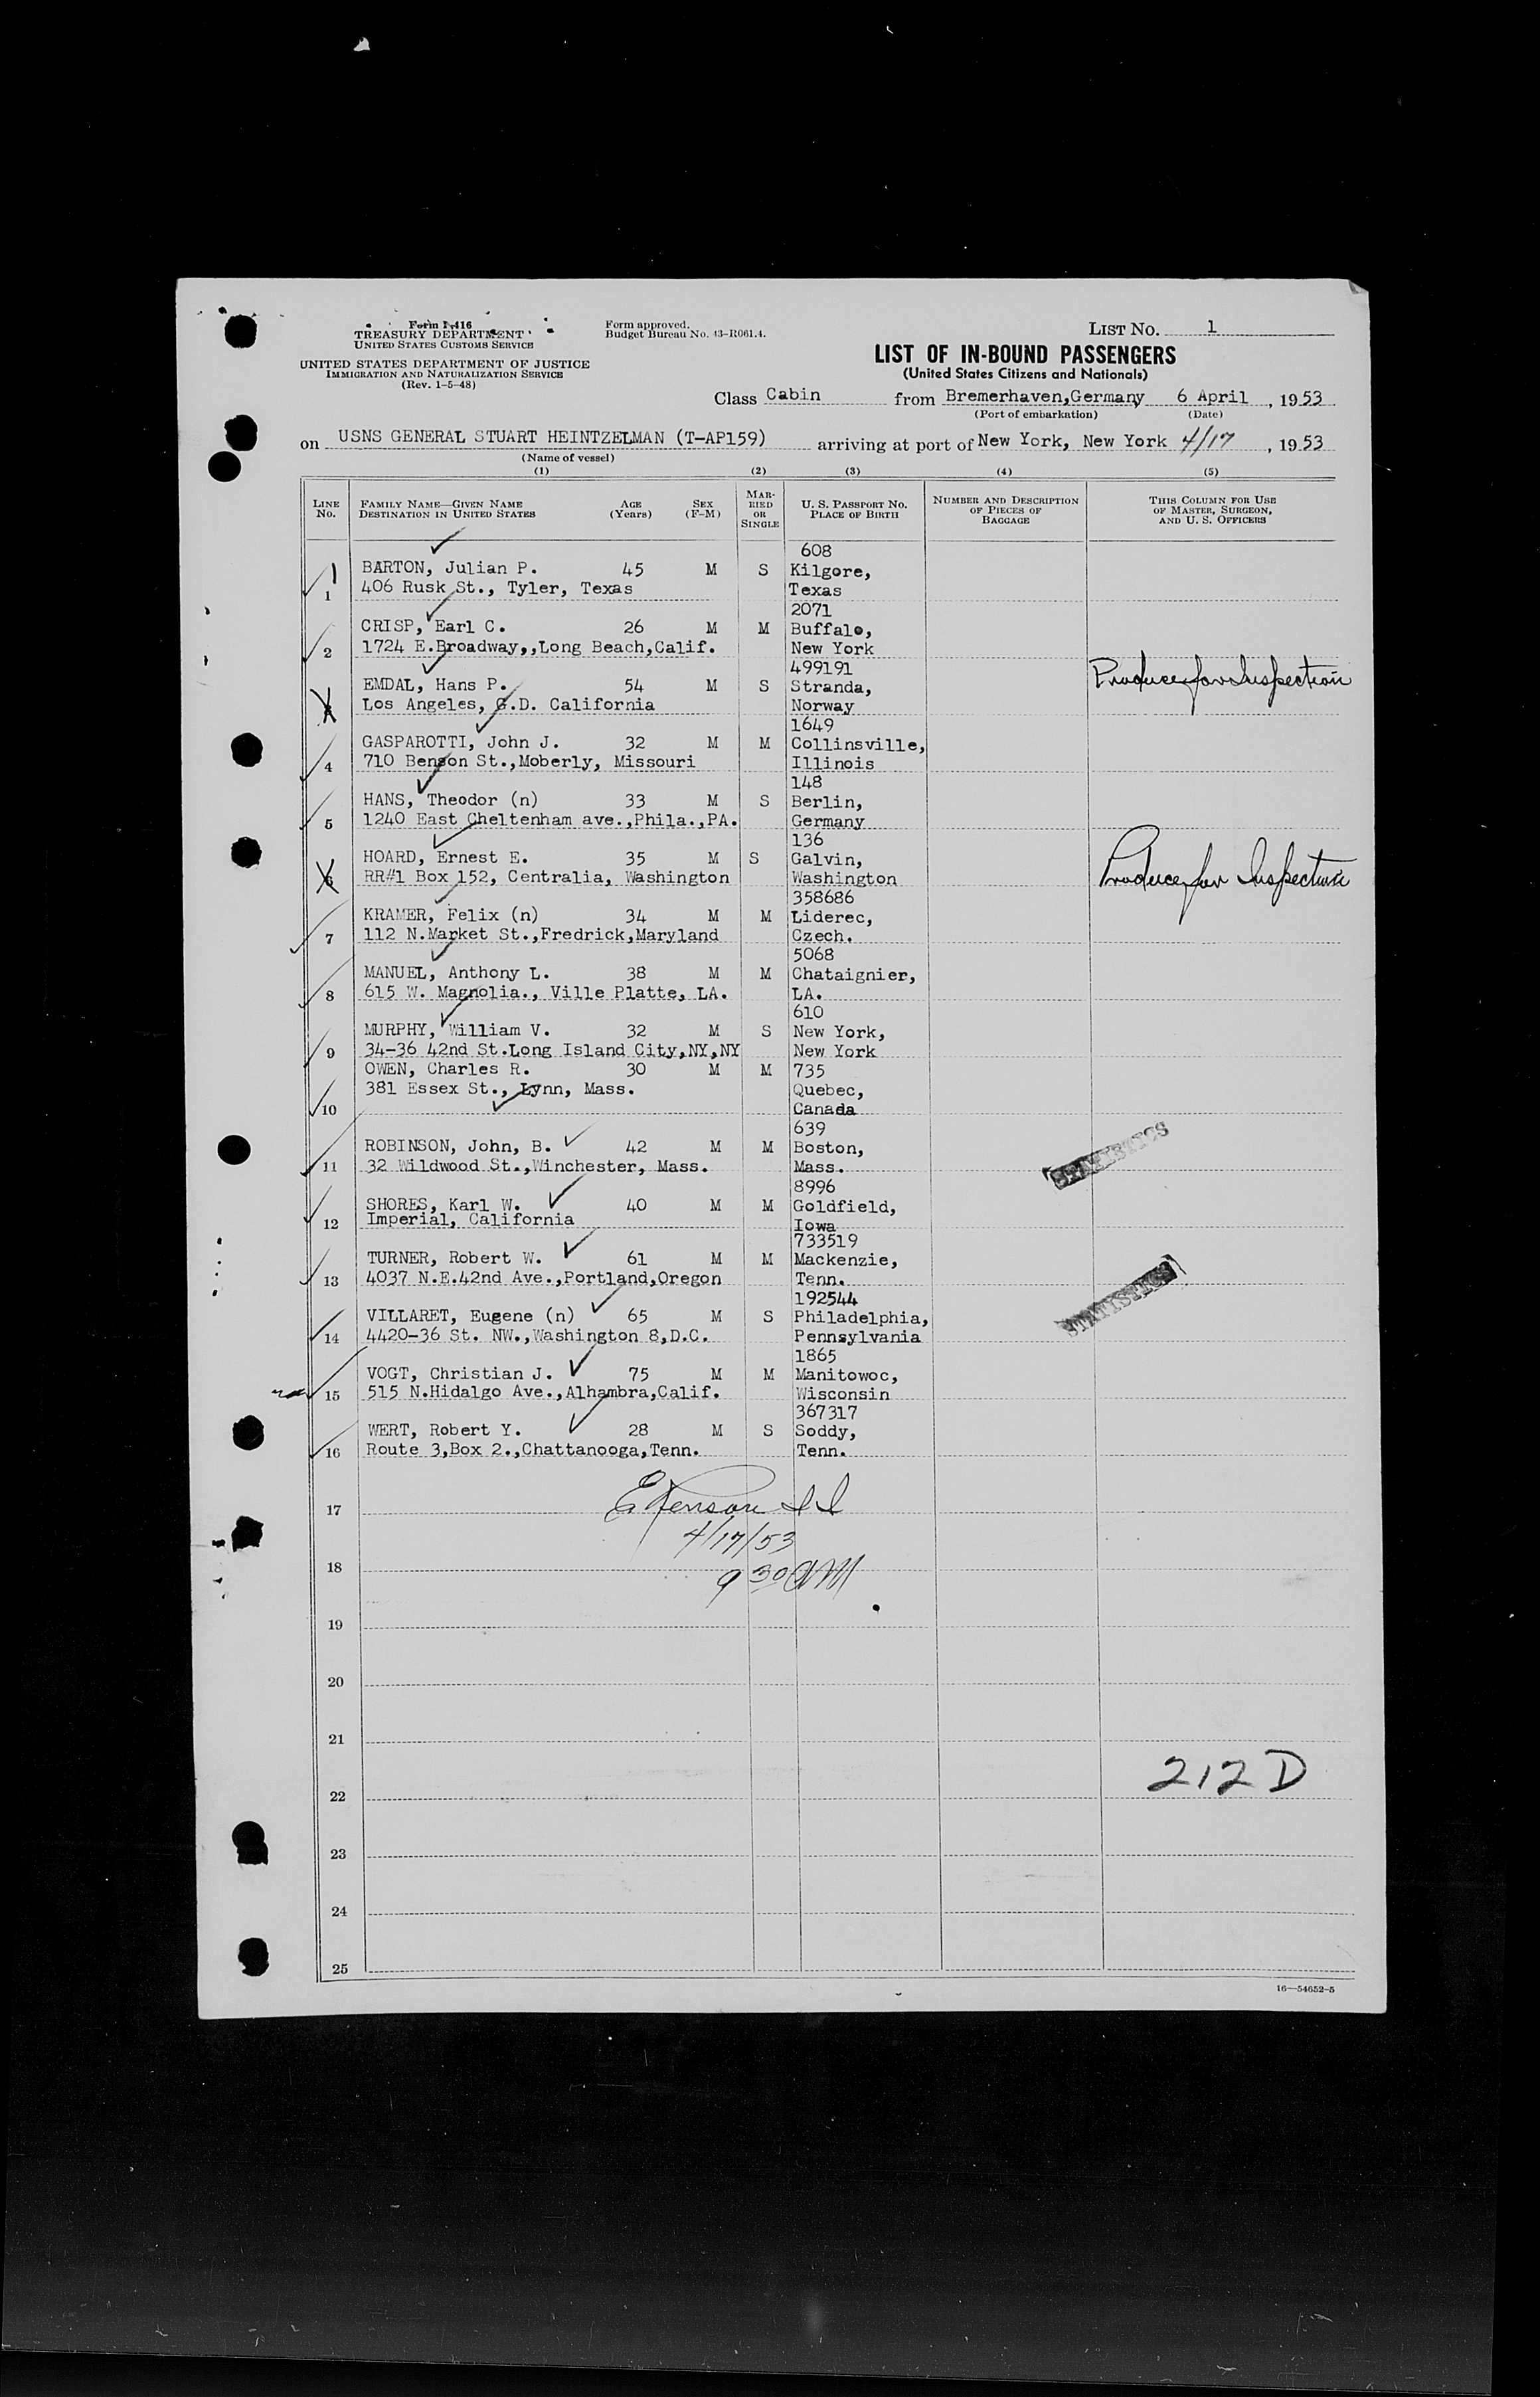 Form I-416
TREASURY DEPARTMENT
UNITED STATES CUSTOMS SERVICE
UNITED STATES DEPARTMENT OF JUSTICE
IMMIGRATION AND NATURALIZATION SERVICE
(Rev. 1-5-48)
Form approved.
Budget Bureau No. 43-R061.4.
LIST NO. 1
LIST OF IN-BOUND PASSENGERS
(United States Citizens and Nationals)
Class Cabin from Bremerhaven,Germany 6 April, 1953
(Port of embarkation) (Date)
on USNS GENERAL STUART HEINTZELMAN (T-AP159) arriving at port of New York, New York 4/17, 1953
(Name of vessel)
(1) (2) (3) (4) (5)
LINE NO. FAMILY NAME—GIVEN NAME DESTINATION IN UNITED STATES AGE (Years) SEX (F-M) MARRIED OR SINGLE U. S. PASSPORT NO. PLACE OF BIRTH NUMBER AND DESCRIPTION OF PIECES OF BAGGAGE THIS COLUMN FOR USE OF MASTER, SURGEON, AND U. S. OFFICERS
608
BARTON, Julian P. 45 M S Kilgore,
1 406 Rusk St., Tyler, Texas Texas
2071
CRISP, Earl C. 26 M M Buffalo,
2 1724 E.Broadway,,Long Beach,Calif. New York
499191 Produce for Inspection
EMDAL, Hans P. 54 M S Stranda,
Los Angeles, G.D. California Norway
1649
GASPAROTTI, John J. 32 M M Collinsville,
4 710 Benson St.,Moberly, Missouri Illinois
148
HANS, Theodor (n) 33 M S Berlin,
5 1240 East Cheltenham ave.,Phila.,PA. Germany
136
HOARD, Ernest E. 35 M S Galvin,
6 RR#1 Box 152, Centralia, Washington Washington Produce for Inspection
358686
KRAMER, Felix (n) 34 M M Liderec,
7 112 N.Market St.,Fredrick,Maryland Czech.
5068
MANUEL, Anthony L. 38 M M Chataignier,
8 615 W. Magnolia., Ville Platte, LA. LA.
610
MURPHY, William V. 32 M S New York,
9 34-36 42nd St.Long Island City,NY,NY New York
OWEN, Charles R. 30 M M 735
381 Essex St., Lynn, Mass. Quebec,
10 Canada
639
ROBINSON, John, B. 42 M M Boston,
11 32 Wildwood St.,Winchester, Mass. Mass.
STATISTICS
8996
SHORES, Karl W. 40 M M Goldfield,
12 Imperial, California Iowa
733519
TURNER, Robert W. 61 M M Mackenzie,
13 4037 N.E.42nd Ave.,Portland,Oregon Tenn.
STATISTICS
192544
VILLARET, Eugene (n) 65 M S Philadelphia,
14 4420-36 St. NW.,Washington 8,D.C. Pennsylvania
1865
VOGT, Christian J. 75 M M Manitowoc,
15 515 N.Hidalgo Ave.,Alhambra,Calif. Wisconsin
367317
WERT, Robert Y. 28 M S Soddy,
16 Route 3,Box 2.,Chattanooga,Tenn. Tenn.
17
4/17/53
18
9 30 AM
19
20
21
212D
22
23
24
25
16—54652-5